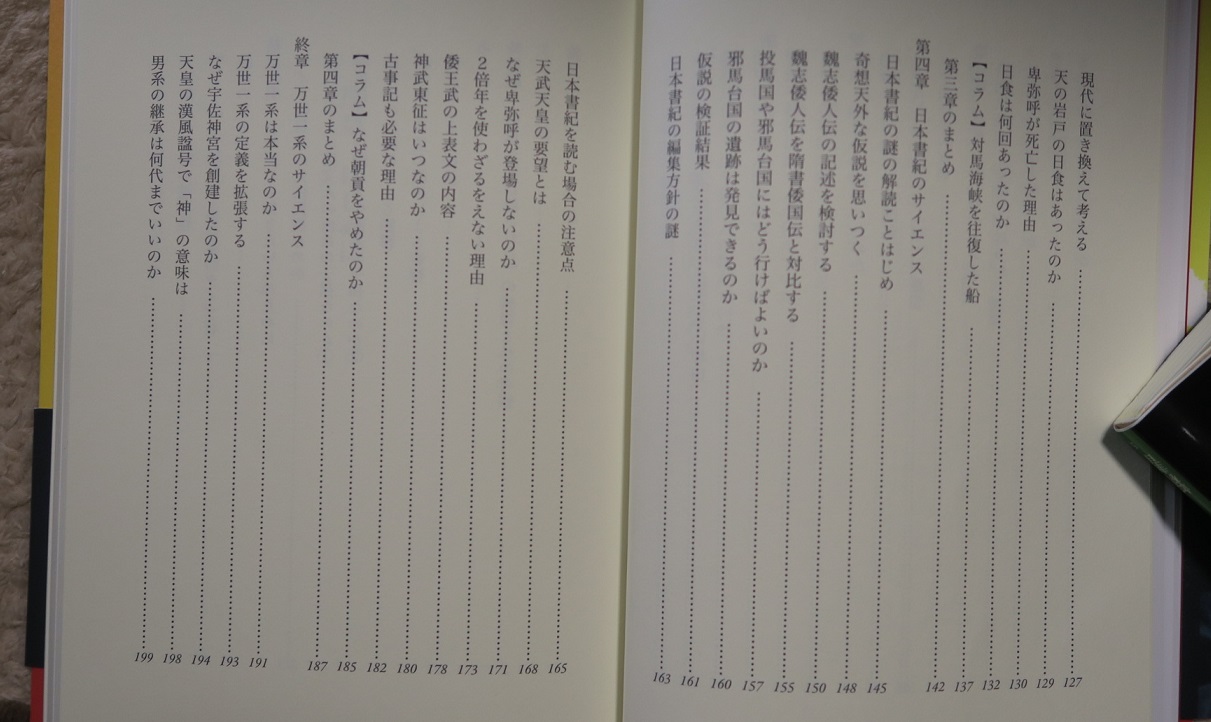 現代に置き換えて考える……127
天の岩戸の日食はあったのか……129
卑弥呼が死亡した理由……130
日食は何回あったのか……132
【コラム】対馬海峡を往復した船……137
第三章のまとめ……142
第四章　日本書紀のサイエンス
日本書紀の謎の解読ことはじめ……145
奇想天外な仮説を思いつく……148
魏志倭人伝の記述を検討する……150
魏志倭人伝を隋書倭国伝と対比する……155
投馬国や邪馬台国にはどう行けばよいのか……157
邪馬台国の遺跡は発見できるのか……160
仮説の検証結果……161
日本書紀の編集方針の謎……163
日本書紀を読む場合の注意点……165
天武天皇の要望とは……168
なぜ卑弥呼が登場しないのか……171
２倍年を使わざるをえない理由……173
倭王武の上表文の内容……178
神武東征はいつなのか……180
古事記も必要な理由……182
【コラム】なぜ朝貢をやめたのか……185
第四章のまとめ……187
終章　万世一系のサイエンス
万世一系は本当なのか……191
万世一系の定義を拡張する……193
なぜ宇佐神宮を創建したのか……194
天皇の漢風諡号で「神」の意味は……198
男系の継承は何代までいいのか……199